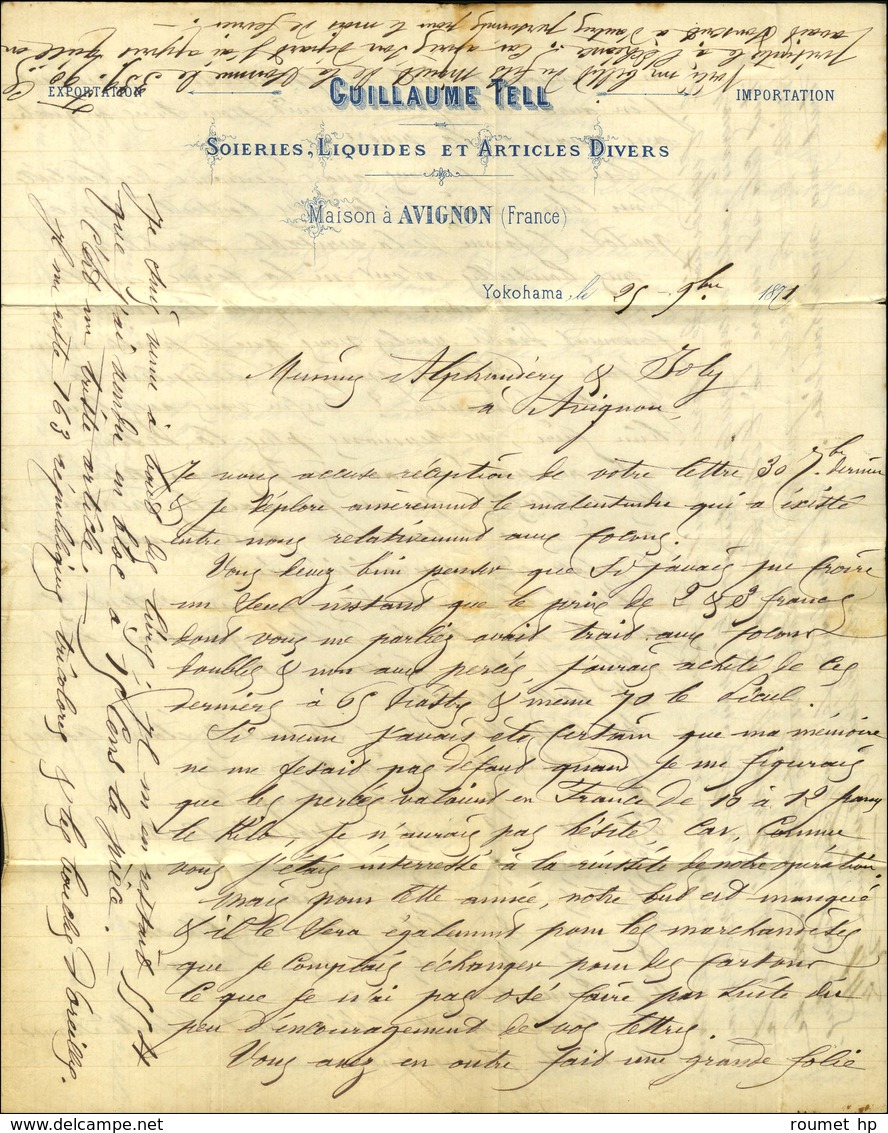 EXPORTATION
GUILLAUME TELL
IMPORTATION
SOIERIES, LIQUIDES ET ARTICLES DIVERS
Maison à AVIGNON (France)
Yokohama, le 25 - 9bre 1871
Messieurs Alphandéry & Joly
à Avignon
Je vous accuse réception de votre lettre 30 7bre dernier
& je déplore amèrement le malentendu qui a existé
entre nous relativement aux cocons.
Vous devez bien penser que si j'avais pu croire
un seul instant que le prix de 2 & 3 francs
dont vous me parliez avait trait aux cocons
doubles & non aux percés, j'aurais acheté de ces
derniers à 65 piastres & même 70 le picul.
Si même j'avais été certain que ma mémoire
ne me fesait pas défaut quand je me figurais
que les percés valaient en France de 10 à 12 francs
le Kilo, je n'aurais pas hésité car, comme
vous j'étais interressé à la réussite de notre opération.
Mais pour cette année, notre but est manqué
& il le sera également pour les marchandises
que je comptais échanger pour des cartons
ce que je n'ai pas osé faire par suite du
peu d'encouragement de vos lettres.
Vous avez en outre fait une grande folie
Je suis venu à bout des ; il m'en restait 554
que j'ai vendu en bloc à la pièce.
C'est un triste article.
Il me reste 163 républiques tricolores & les boucles d'oreilles.
roumet hp
roumet hp